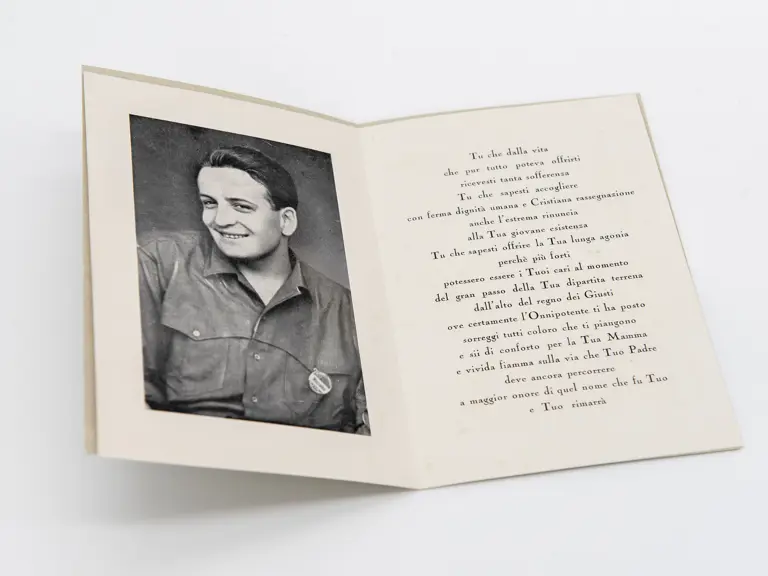 Tu che dalla vita
che pur tutto poteva offrirti
ricevesti tanta sofferenza
Tu che sapesti accogliere
con ferma dignità umana e Cristiana rassegnazione
anche l'estrema rinuncia
alla Tua giovane esistenza
Tu che sapesti offrire la Tua lunga agonia
perchè più forti
potessero essere i Tuoi cari al momento
del gran passo della Tua dipartita terrena
dall'alto del regno dei Giusti
ove certamente l'Onnipotente ti ha posto
sorreggi tutti coloro che ti piangono
e sii di conforto per la Tua Mamma
e vivida fiamma sulla via che Tuo Padre
deve ancora percorrere
a maggior onore di quel nome che fu Tuo
e Tuo rimarrà